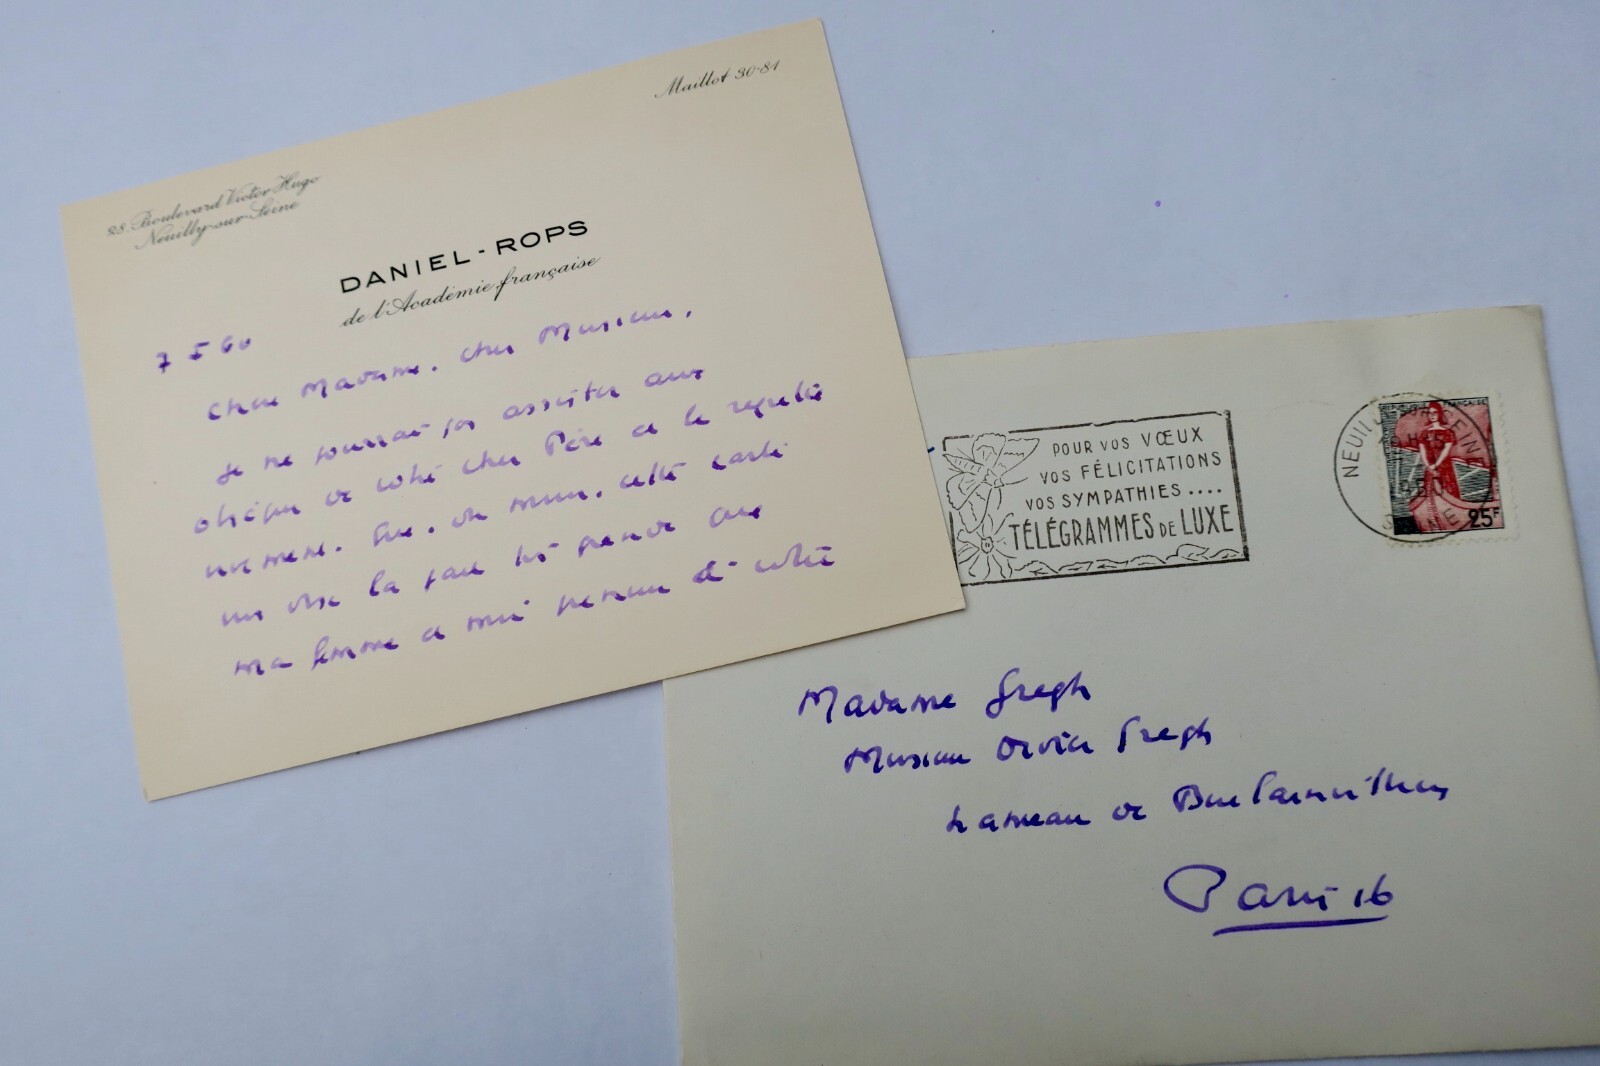 Maillot 30-81
28, Boulevard Victor Hugo
Neuilly-sur-Seine
DANIEL-ROPS
de l'Académie française
7 I 60
Chère Madame, cher Monsieur,
Je ne pourrai pas assister aux
obsèques de votre cher Père et le regrette
vivement. Que, du moins, cette carte
vous dise la part très grande que
ma femme et moi prenons à votre
POUR VOS VŒUX
VOS FÉLICITATIONS
VOS SYMPATHIES....
TÉLÉGRAMMES DE LUXE
NEUILLY SUR SEINE
1960
SEINE
REPUBLIQUE FRANÇAISE
25F
Madame Gregh
Monsieur Gregh
Hameau de Boulainvilliers
Paris 16